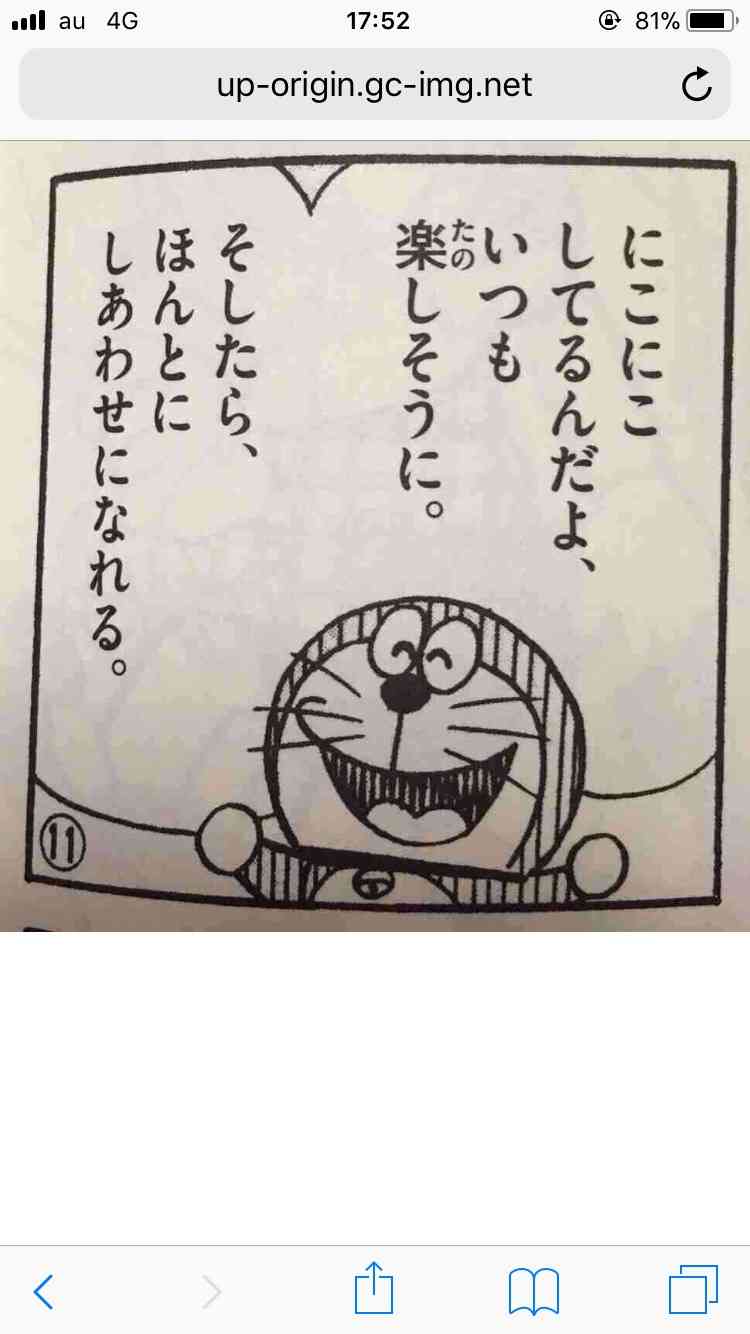 au 4G 17:52 81%
up-origin.gc-img.net
にこにこ
してるんだよ、
いつも
楽しそうに。
たの
そしたら、
ほんとに
しあわせになれる。
11